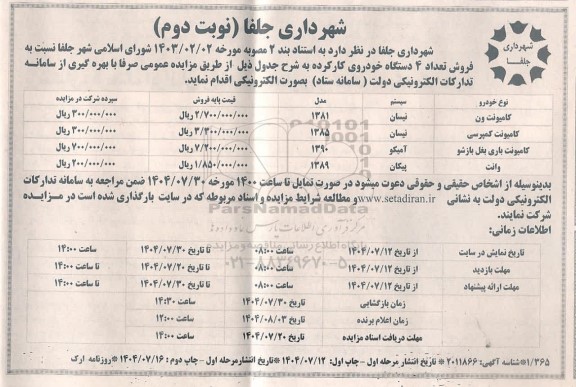 شهرداری جلفا (نوبت دوم)
شهرداری
جلفا
شهرداری جلفا در نظر دارد به استناد بند ۲ مصوبه مورخه ۱۴۰۳/۰۲/۰۲ شورای اسلامی شهر جلفا نسبت به
فروش تعداد ۴ دستگاه خودروی کارکرده به شرح جدول ذیل از طریق مزایده عمومی صرفا با بهره گیری از سامانه
تدارکات الکترونیکی دولت (سامانه ستاد) بصورت الکترونیکی اقدام نماید.
نوع خودرو سیستم مدل قیمت پایه فروش سپرده شرکت در مزایده
کامیونت ون نیسان ۱۳۸۱ ۲/۷۰۰/۰۰۰/۰۰۰ ریال ۳۰۰/۰۰۰/۰۰۰ ریال
کامیونت کمپرسی نیسان ۱۳۸۵ ۳/۳۰۰/۰۰۰/۰۰۰ ریال ۳۰۰/۰۰۰/۰۰۰ ریال
کامیونت باری بغل بازشو آمیکو ۱۳۹۰ ۷/۲۰۰/۰۰۰/۰۰۰ ریال ۷۰۰/۰۰۰/۰۰۰ ریال
وانت پیکان ۱۳۸۹ ۱/۸۵۰/۰۰۰/۰۰۰ ریال ۲۰۰/۰۰۰/۰۰۰ ریال
بدینوسیله از اشخاص حقیقی و حقوقی دعوت میشود در صورت تمایل تا ساعت ۱۴۰۰ مورخه ۱۴۰۴/۰۷/۳۰ ضمن مراجعه به سامانه تدارکات
الکترونیکی دولت به نشانی www.setadiran.ir و مطالعه شرایط مزایده و اسناد مربوطه که در سایت بارگذاری شده است در مزایده
شرکت نمایند.
ParsNamadData
اطلاعات زمانی:
پایگاه اطلاع رسانی مناقصه و مزایده
۰۲۱-۸۸۳۴۹۶۷۰-۵
تاریخ نمایش در سایت از تاریخ ۱۴۰۴/۰۷/۱۲ ساعت ۰۸:۰۰ تا تاریخ ۱۴۰۴/۰۷/۳۰ ساعت ۱۴:۰۰
مهلت بازدید از تاریخ ۱۴۰۴/۰۷/۱۲ ساعت ۰۸:۰۰ تا تاریخ ۱۴۰۴/۰۷/۲۰ تا ساعت ۱۴:۰۰
مهلت ارائه پیشنهاد از تاریخ ۱۴۰۴/۰۷/۱۲ ساعت ۰۸:۰۰ تا تاریخ ۱۴۰۴/۰۷/۳۰ تا ساعت ۱۴:۰۰
زمان بازگشایی تاریخ ۱۴۰۴/۰۷/۳۰ ساعت ۱۴:۳۰
زمان اعلام برنده تاریخ ۱۴۰۴/۰۸/۰۳ ساعت ۱۲:۰۰
مهلت دریافت اسناد مزایده تاریخ ۱۴۰۴/۰۷/۲۰ ساعت ۱۴:۰۰
۱/۳۶۵*شناسه آگهی: ۲۰۱۱۸۶۶ *تاریخ انتشار مرحله اول - چاپ اول: ۱۴۰۴/۰۷/۱۲ *تاریخ انتشار مرحله اول - چاپ دوم: ۱۴۰۴/۰۷/۱۶ *روزنامه ارک